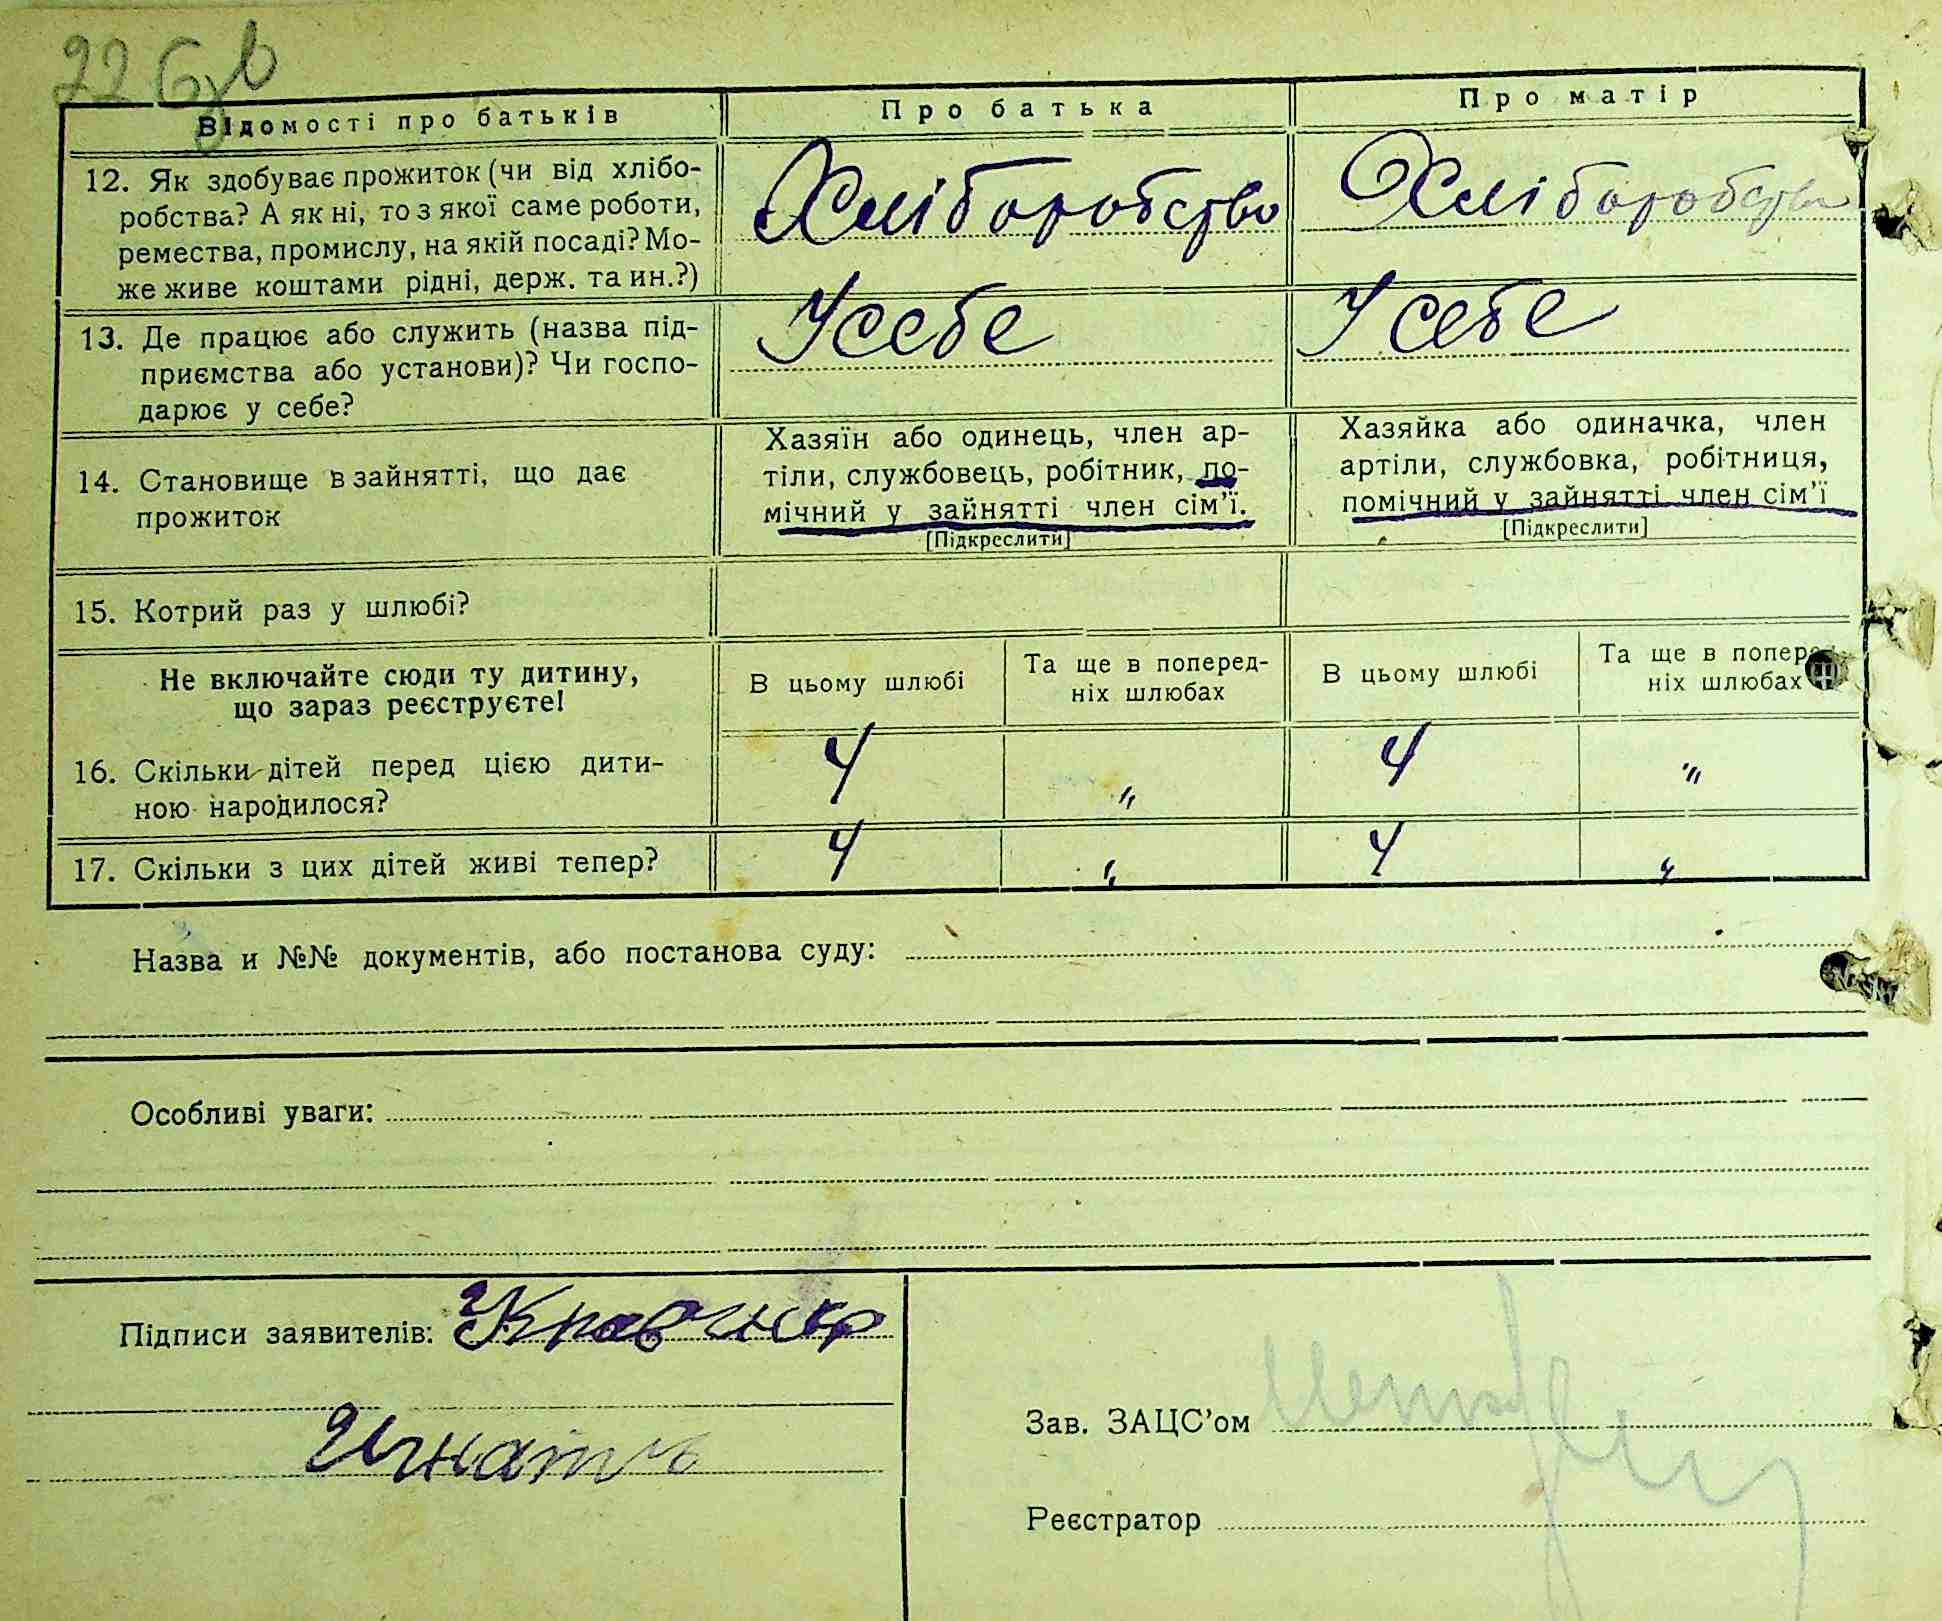 22 зв
Відомості про батьків
Про батька
Про матір
12. Як здобуває прожиток (чи від хлібо-
робства? А як ні, то з якої саме роботи,
ремества, промислу, на якій посаді? Мо-
же живе коштами рідні, держ. та ин.?)
Хліборобство
Хліборобство
13. Де працює або служить (назва під-
приємства або установи)? Чи госпо-
дарює у себе?
У себе
У себе
14. Становище в зайнятті, що дає
прожиток
Хазяїн або одинець, член ар-
тіли, службовець, робітник, по-
мічний у зайнятті член сім'ї.
[Підкреслити]
Хазяйка або одиначка, член
артіли, службовка, робітниця,
помічний у зайнятті член сім'ї
[Підкреслити]
15. Котрий раз у шлюбі?
Не включайте сюди ту дитину,
що зараз реєструєте!
В цьому шлюбі
Та ще в поперед-
ніх шлюбах
В цьому шлюбі
Та ще в попере
ніх шлюбах
16. Скільки дітей перед цією дити-
ною народилося?
4 „ 4 „
17. Скільки з цих дітей живі тепер?
4 „ 4 „
Назва и №№ документів, або постанова суду:
Особливі уваги:
Підписи заявителів: Кравчик
Игнать
Зав. ЗАЦС'ом
Реєстратор